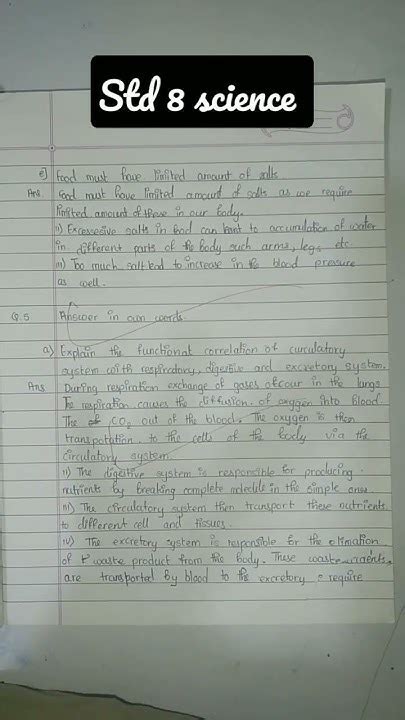 Std 8 science
e] Food must have limited amount of salts.
Ans. Food must have limited amount of salts as we require
limited amount of these in our body.
ii) Excessive salts in food can lead to accumulation of water
in different parts of the body such arms, legs etc
iii) Too much salt lead to increase in the blood pressure
as well.
Q.5 Answer in own words.
a) Explain the functional correlation of curculatory
system with respiratory, digestive and excretory system.
Ans During respiration exchange of gases occur in the lungs
The respiration causes the diffusion of oxygen into blood
The CO2 out of the blood. The oxygen is then
transpotation to the cells of the body via the
circulatory system.
ii) The digestive system is responsible for producing
nutrients by breaking complete molecule in the simple ones
iii) The circulatory system then transport these nutrients
to different cell and tissues.
iv) The excretory system is responsible for the
of waste product from the body. These waste
are transported by blood to the excretory require